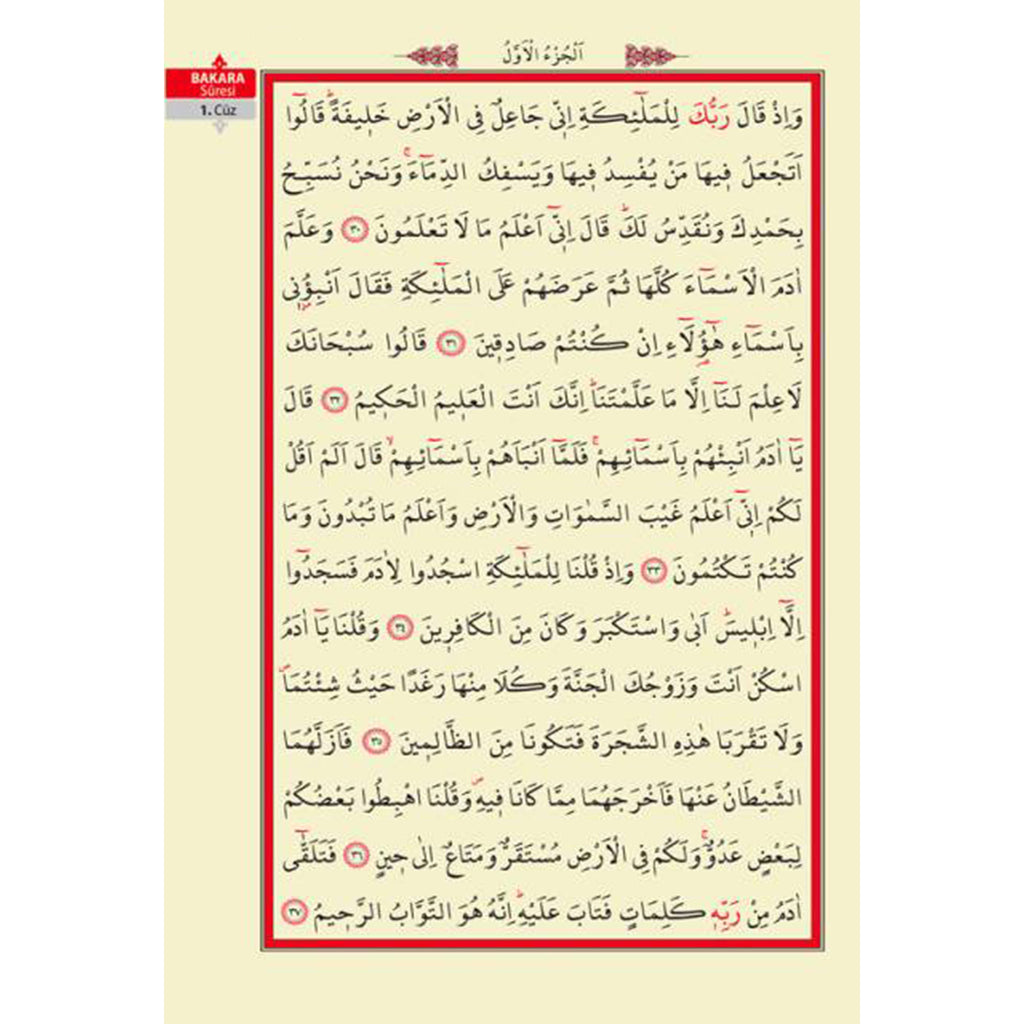 اَلْجُزْءُ الْاَوَّلُ
BAKARA
Sûresi
1. Cüz
وَاِذْ قَالَ رَبُّكَ لِلْمَلٰٓئِكَةِ اِنّ۪ي جَاعِلٌ فِي الْاَرْضِ خَل۪يفَةًۜ قَالُٓوا
اَتَجْعَلُ ف۪يهَا مَنْ يُفْسِدُ ف۪يهَا وَيَسْفِكُ الدِّمَٓاءَۚ وَنَحْنُ نُسَبِّحُ
بِحَمْدِكَ وَنُقَدِّسُ لَكَۜ قَالَ اِنّ۪ٓي اَعْلَمُ مَا لَا تَعْلَمُونَ ﴿٣٠﴾ وَعَلَّمَ
اٰدَمَ الْاَسْمَٓاءَ كُلَّهَا ثُمَّ عَرَضَهُمْ عَلَى الْمَلٰٓئِكَةِ فَقَالَ اَنْبِؤُ۫ن۪ي
بِاَسْمَٓاءِ هٰٓؤُ۬لَٓاءِ اِنْ كُنْتُمْ صَادِق۪ينَ ﴿٣١﴾ قَالُوا سُبْحَانَكَ
لَا عِلْمَ لَنَٓا اِلَّا مَا عَلَّمْتَنَاۜ اِنَّكَ اَنْتَ الْعَل۪يمُ الْحَك۪يمُ ﴿٣٢﴾ قَالَ
يَٓا اٰدَمُ اَنْبِئْهُمْ بِاَسْمَٓائِهِمْۚ فَلَمَّٓا اَنْبَاَهُمْ بِاَسْمَٓائِهِمْۙ قَالَ اَلَمْ اَقُلْ
لَكُمْ اِنّ۪ٓي اَعْلَمُ غَيْبَ السَّمٰوَاتِ وَالْاَرْضِ وَاَعْلَمُ مَا تُبْدُونَ وَمَا
كُنْتُمْ تَكْتُمُونَ ﴿٣٣﴾ وَاِذْ قُلْنَا لِلْمَلٰٓئِكَةِ اسْجُدُوا لِاٰدَمَ فَسَجَدُٓوا
اِلَّٓا اِبْل۪يسَۜ اَبٰى وَاسْتَكْبَرَ وَكَانَ مِنَ الْكَافِر۪ينَ ﴿٣٤﴾ وَقُلْنَا يَٓا اٰدَمُ
اسْكُنْ اَنْتَ وَزَوْجُكَ الْجَنَّةَ وَكُلَا مِنْهَا رَغَدًا حَيْثُ شِئْتُمَاۖ
وَلَا تَقْرَبَا هٰذِهِ الشَّجَرَةَ فَتَكُونَا مِنَ الظَّالِم۪ينَ ﴿٣٥﴾ فَاَزَلَّهُمَا
الشَّيْطَانُ عَنْهَا فَاَخْرَجَهُمَا مِمَّا كَانَا ف۪يهِۖ وَقُلْنَا اهْبِطُوا بَعْضُكُمْ
لِبَعْضٍ عَدُوٌّۚ وَلَكُمْ فِي الْاَرْضِ مُسْتَقَرٌّ وَمَتَاعٌ اِلٰى ح۪ينٍ ﴿٣٦﴾ فَتَلَقّٰٓى
اٰدَمُ مِنْ رَبِّه۪ كَلِمَاتٍ فَتَابَ عَلَيْهِۜ اِنَّهُ هُوَ التَّوَّابُ الرَّح۪يمُ ﴿٣٧﴾